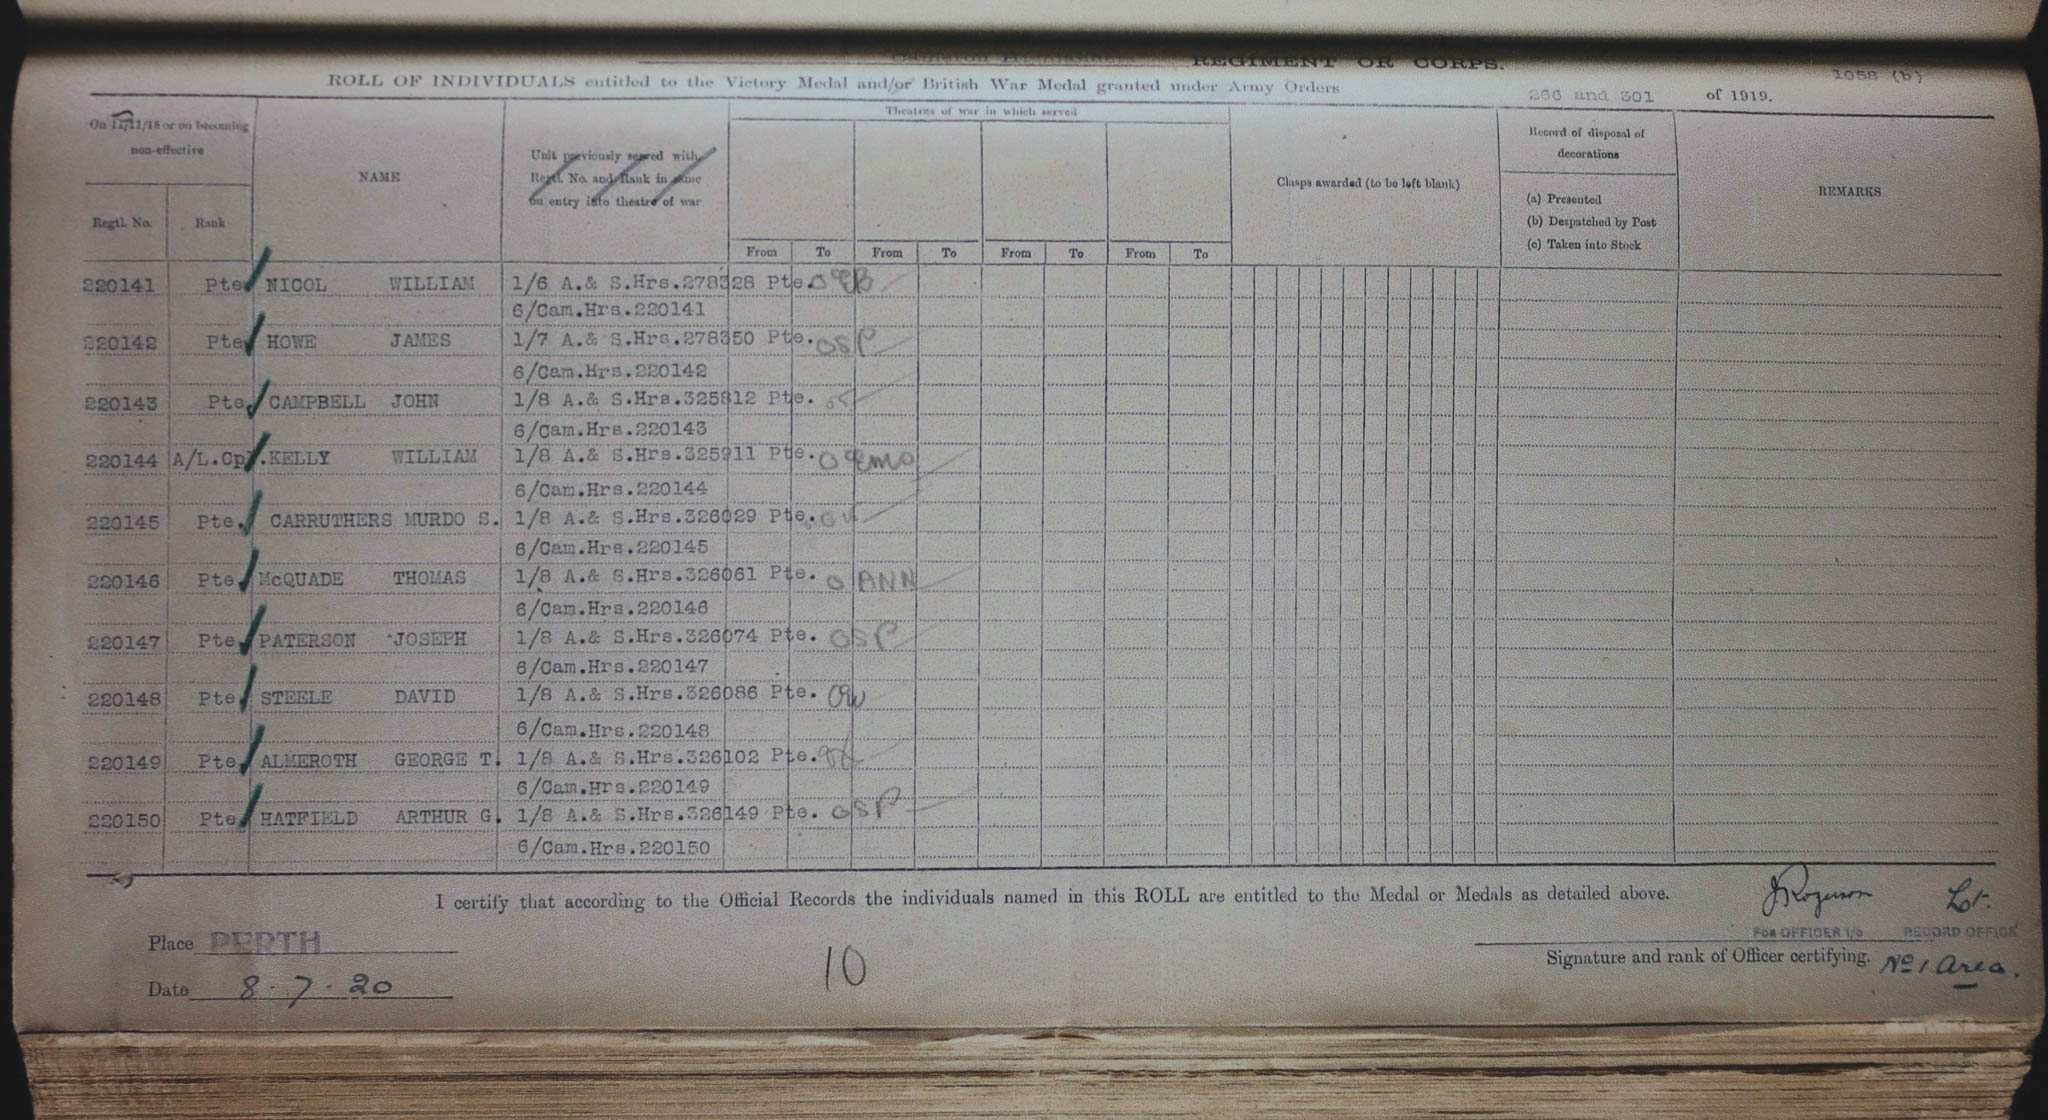 REGIMENT OR CORPS.
1058 (b)
ROLL OF INDIVIDUALS entitled to the Victory Medal and/or British War Medal granted under Army Orders 266 and 301 of 1919.
On 11/11/18 or on becoming non-effective
Regtl. No.
Rank
NAME
Unit previously served with,
Regtl. No. and Rank in same
on entry into theatre of war
Theatres of war in which served
From To From To From To From To
Clasps awarded (to be left blank)
Record of disposal of decorations
(a) Presented
(b) Despatched by Post
(c) Taken into Stock
REMARKS
220141 Pte. NICOL WILLIAM 1/6 A.& S.Hrs.278328 Pte.
6/Cam.Hrs.220141
220142 Pte. HOWE JAMES 1/7 A.& S.Hrs.278350 Pte. OSP
6/Cam.Hrs.220142
220143 Pte. CAMPBELL JOHN 1/8 A.& S.Hrs.325812 Pte.
6/Cam.Hrs.220143
220144 A/L.Cpl. KELLY WILLIAM 1/8 A.& S.Hrs.325911 Pte.
6/Cam.Hrs.220144
220145 Pte. CARRUTHERS MURDO S. 1/8 A.& S.Hrs.326029 Pte.
6/Cam.Hrs.220145
220146 Pte. McQUADE THOMAS 1/8 A.& S.Hrs.326061 Pte. O ANN
6/Cam.Hrs.220146
220147 Pte. PATERSON JOSEPH 1/8 A.& S.Hrs.326074 Pte. OSP
6/Cam.Hrs.220147
220148 Pte. STEELE DAVID 1/8 A.& S.Hrs.326086 Pte.
6/Cam.Hrs.220148
220149 Pte. ALMEROTH GEORGE T. 1/8 A.& S.Hrs.326102 Pte.
6/Cam.Hrs.220149
220150 Pte. HATFIELD ARTHUR G. 1/8 A.& S.Hrs.326149 Pte. OSP
6/Cam.Hrs.220150
I certify that according to the Official Records the individuals named in this ROLL are entitled to the Medal or Medals as detailed above.
Lt.
Place PERTH
FOR OFFICER I/C RECORD OFFICE
Signature and rank of Officer certifying. No 1 Area.
Date 8.7.20
10